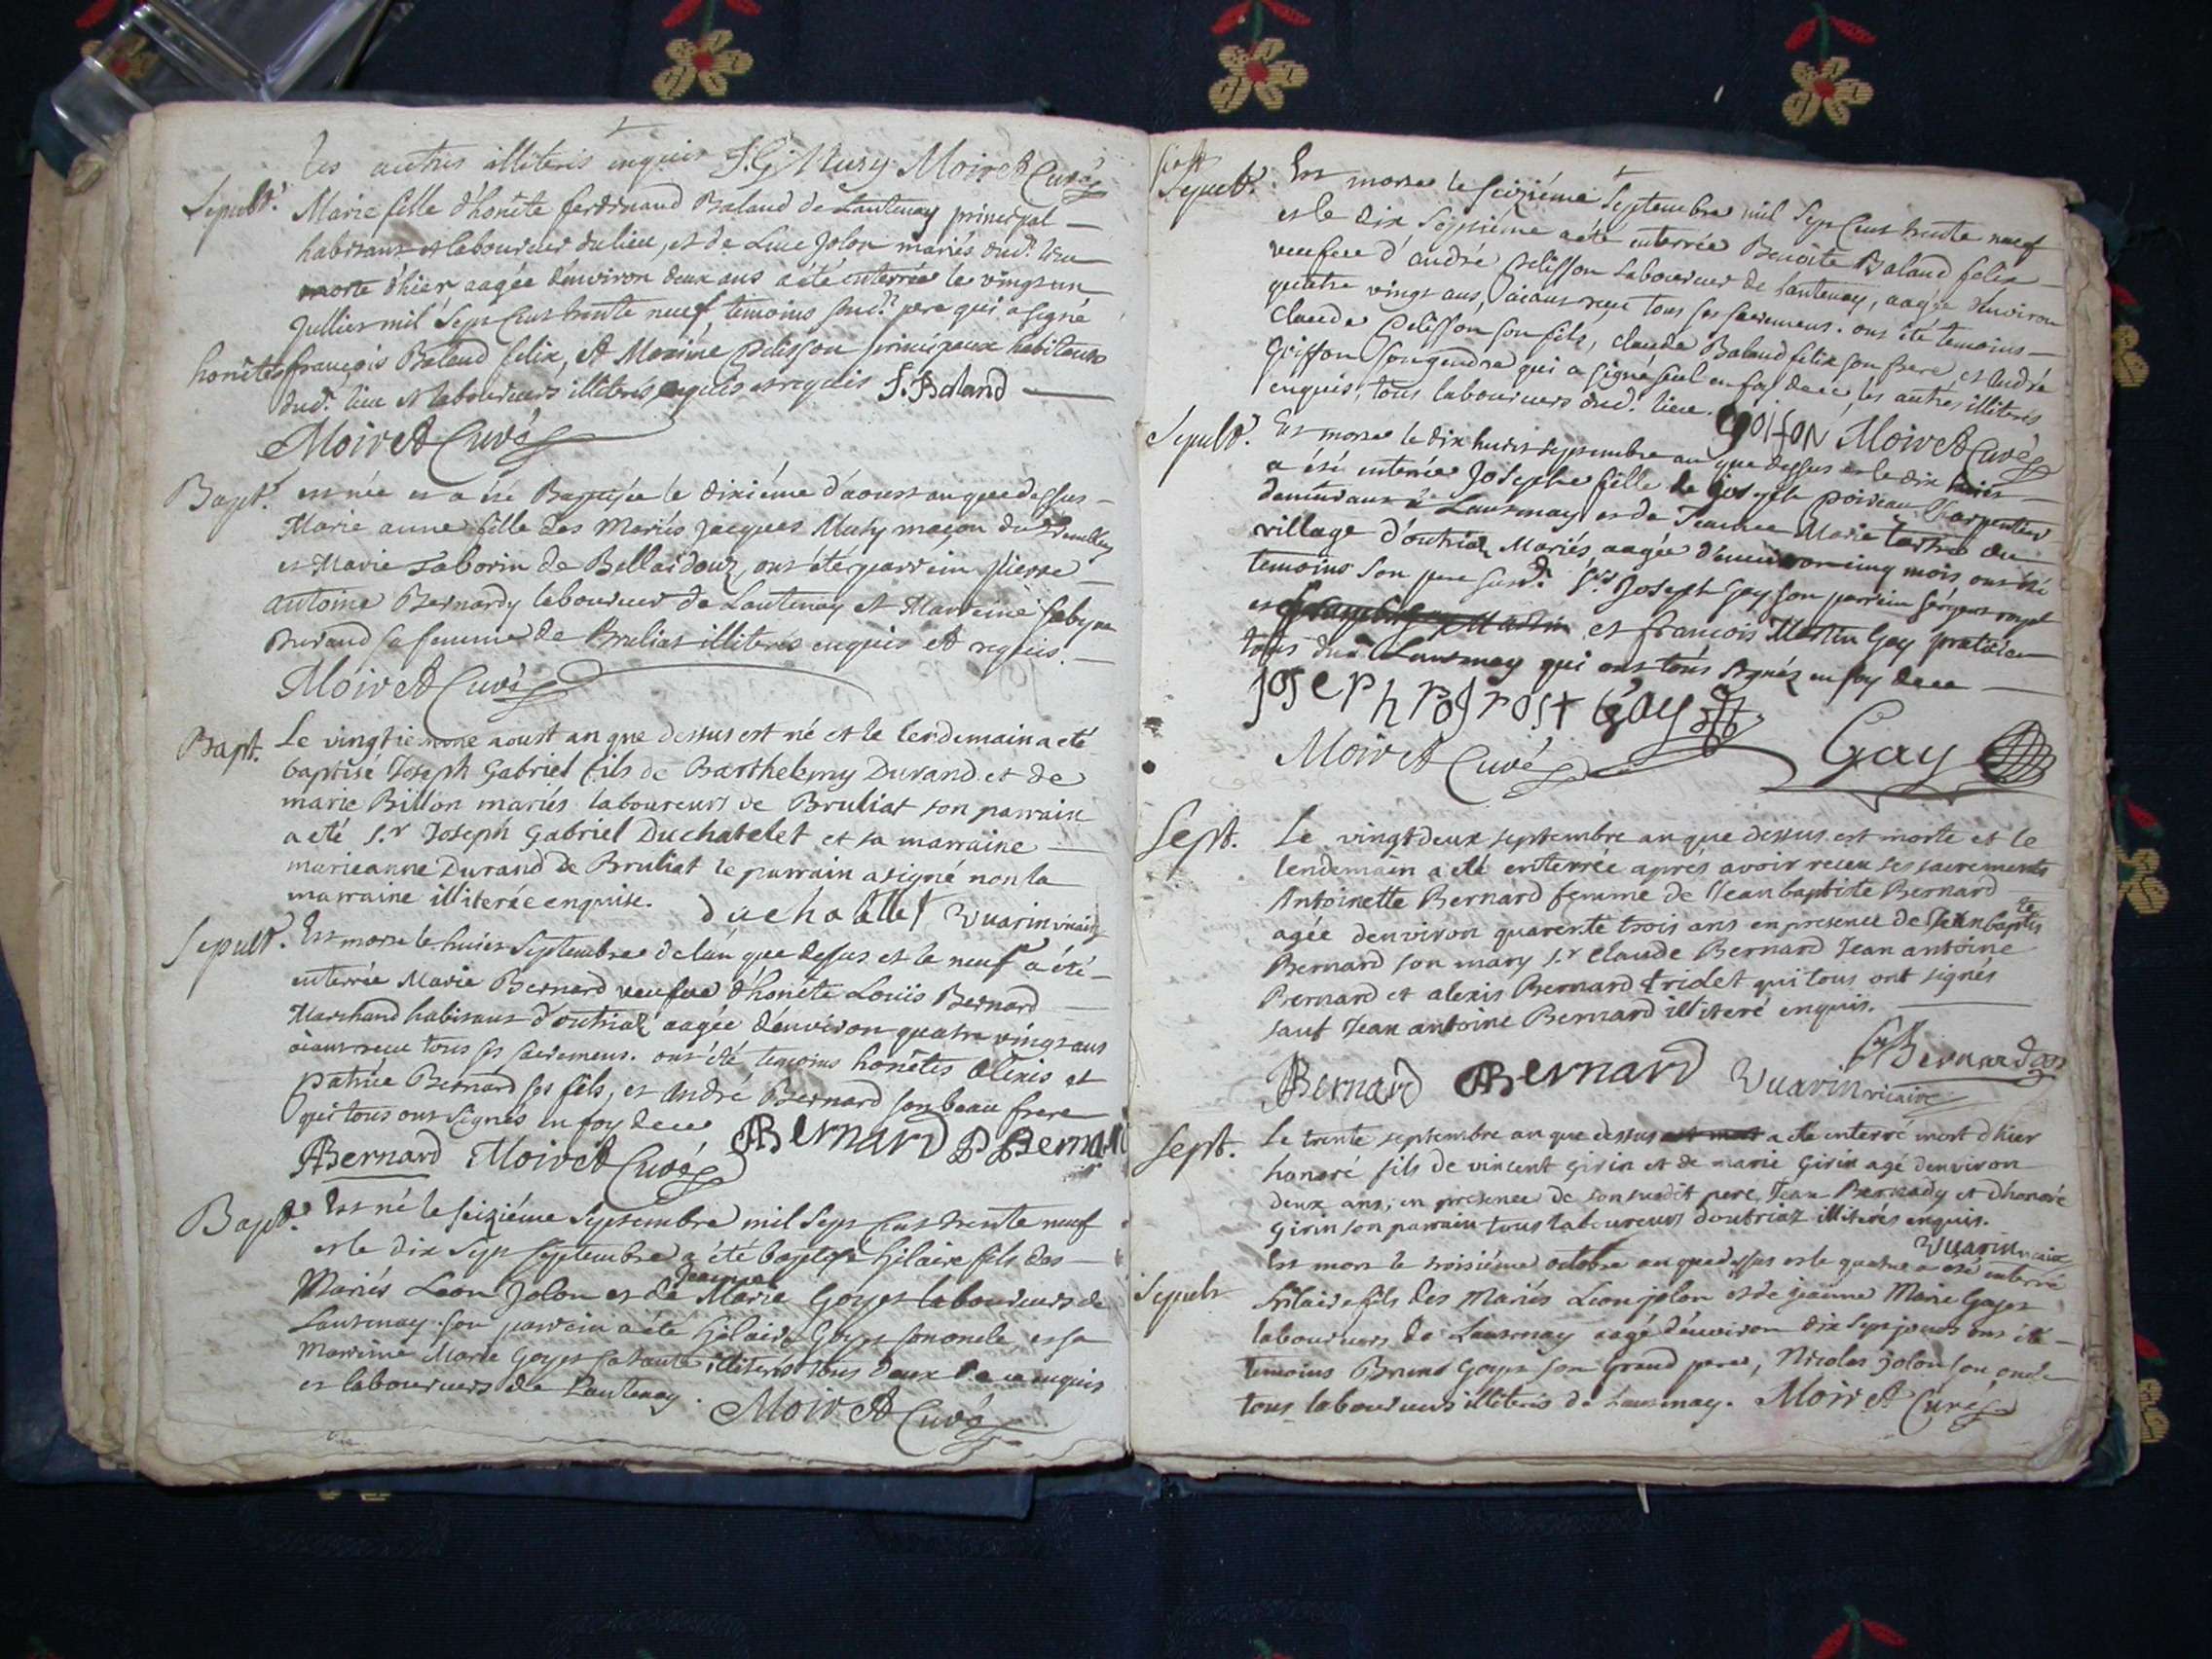 les autres illiterés enquis J. G. Mury Moiret Curé
Sepult.^e Marie fille d'honête ferdinand Baland de Lantenay principal
habitant et laboureur du lieu, et de Luce Jolon mariés dud.^t lieu
morte d'hier aagée d'environ deux ans a été enterrée le vingt un
Juillier mil Sept Cent trente neuf, temoins sond.^t pere qui a signé
honêtes françois Baland felix, et Maxime Pelisson principaux habitans
dud.^t lieu et laboureurs illiterés enquis et requis F. Baland
Moiret Curé
Bapt.^e est née et a été Baptisée le dixiéme d'aoust an que dessus
Marie anne fille des Mariés Jacques Mury maçon du
et Marie Saborin de Belleydoux, ont été parrein pierre
antoine Bernardy laboureur de Lantenay et Marreine
Durand sa femme de Bruliat illiterés enquis et requis.
Moiret Curé
Bapt. Le vingtiemme aoust an que dessus est né et le lendemain a eté
baptisé Joseph Gabriel fils de Barthelemy Durand et de
marie Billon mariés laboureurs de Bruliat son parrain
a eté s.^r Joseph Gabriel Duchatelet et sa marraine
marieanne Durand de Bruliat le parrain a signé non la
marraine illiterée enquise. duchatelet Vuarin vicaire
Sepult. Est morte le huiet Septembre de l'an que dessus et le neuf a été
enterrée Marie Bernard veufve d'honête Louis Bernard
Marchand habitant d'outriaz aagée d'environ quatre vingt ans
aiant receu tous ses sacremens. ont été temoins honêtes Alexis et
patrice Bernard ses fils, et André Bernard son beau frere
qui tous ont signés en foy de ce
ABernard Moiret Curé ABernard PBernard
Bapt.^e Est né le seiziéme Septembre mil Sept Cent trente neuf
et le dix sept Septembre a été baptisé hilaire fils des
Mariés Leon Jolon et de Jeanne Marie Goyet laboureurs de
Lantenay. son parrein a été hilaire Goyet son oncle, et sa
Marreine Marie Goyet sa tante illiterés tous deux de ce enquis
et laboureurs de Lantenay. Moiret Curé
Sepult.^e Est morte le seiziéme Septembre mil Sept Cent trente neuf
et le dix Septiéme a été enterrée Benoite Baland felix
veufve d'andré Pelisson laboureur de Lantenay, aagée d'environ
quatre vingt ans, aiant receu tous ses sacremens. ont été temoins
claude Pelisson son fils, claude Baland felix son frere et André
Goiffon son gendre qui a signé seul en foy de ce, les autres illiterés
enquis, tous laboureurs dud.^t lieu. goifon Moiret Curé
Sepult.^e Est morte le dix huit septembre an que dessus et le dix neuf
a été enterrée Josephe fille de joseph poncean charpentier
demeurant à Lantenay et de Jeanne Marie tartre du
village d'outriaz Mariés, aagée d'environ cinq mois ont été
temoins son pere susd.^t s.^r Joseph Gay son parrein sergent royal
et et francois Martin Gay praticien
tous dud.^t Lantenay qui ont tous signés en foy de ce
Joseph Gay
Moiret Curé Gay
Sept. Le vingtdeux septembre an que dessus est morte et le
lendemain a eté enterrée apres avoir receu ses sacrements
Antoinette Bernard femme de Jean baptiste Bernard
agée denviron quarente trois ans en presence de Jean baptiste
Bernard son mary s.^r claude Bernard Jean antoine
Bernard et alexis Bernard tridet qui tous ont signés
sauf Jean antoine Bernard illiteré enquis.
Bernard
Bernard ABernard Vuarin vicaire
Sept. Le trente septembre an que dessus est mort a eté enterré mort dhier
honoré fils de vincent girin et de marie Girin agé denviron
deux ans, en presence de son susdit pere, Jean Bernady et dhonoré
Girin son parrain tous laboureurs doutriaz illiterés enquis.
Vuarin vicaire
Sepult Est mort le troisiéme octobre an que dessus et le quatre a été enterré
hilaire fils des Mariés Leon jolon et de jeanne Marie Goyet
laboureurs de Lantenay aagé d'environ dix sept jours ont été
temoins Bruno Goyet son Grand pere, Nicolas jolon son oncle
tous laboureurs illiterés de Lantenay. Moiret Curé